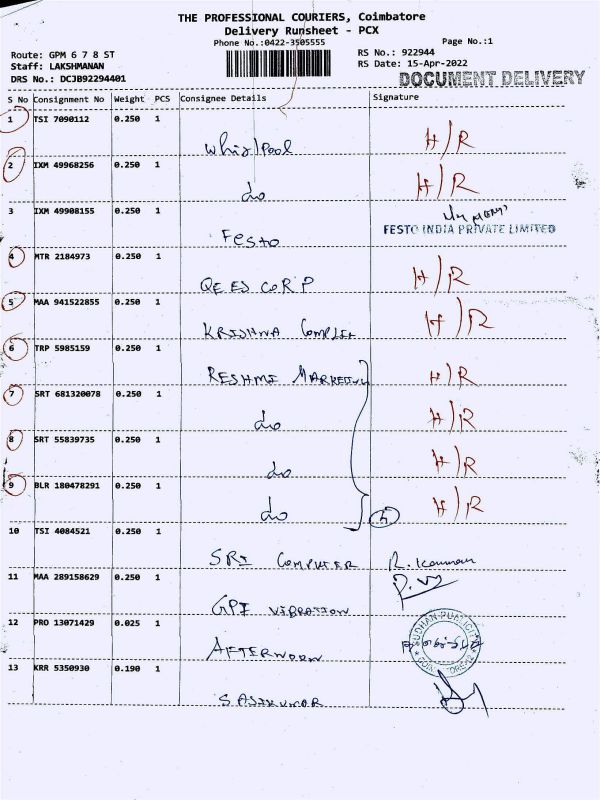 THE PROFESSIONAL COURIERS, Coimbatore
Delivery Runsheet - PCX
Phone No.:0422-3505555
Page No.:1
Route: GPM 6 7 8 ST
RS No.: 922944
Staff: LAKSHMANAN
RS Date: 15-Apr-2022
DRS No.: DCJB92294401
DOCUMENT DELIVERY
S No Consignment No Weight PCS Consignee Details Signature
1 TSI 7090112 0.250 1
Whirlpool H/R
2 IXM 49968256 0.250 1
do H/R
3 IXM 49908155 0.250 1
Festo FESTO INDIA PRIVATE LIMITED
4 MTR 2184973 0.250 1
QEES CORP H/R
5 MAA 941522855 0.250 1
KRISHNA COMPLEX H/R
6 TRP 5985159 0.250 1
RESHMI MARKETING H/R
7 SRT 681320078 0.250 1
do H/R
8 SRT 55839735 0.250 1
do H/R
9 BLR 180478291 0.250 1
do 4 H/R
10 TSI 4084521 0.250 1
SRI COMPUTER R. Kannan
11 MAA 289158629 0.250 1
GPI VIBRATION
12 PRO 13071429 0.025 1
AFTERNOON
13 KRR 5350930 0.190 1
SASIKUMAR